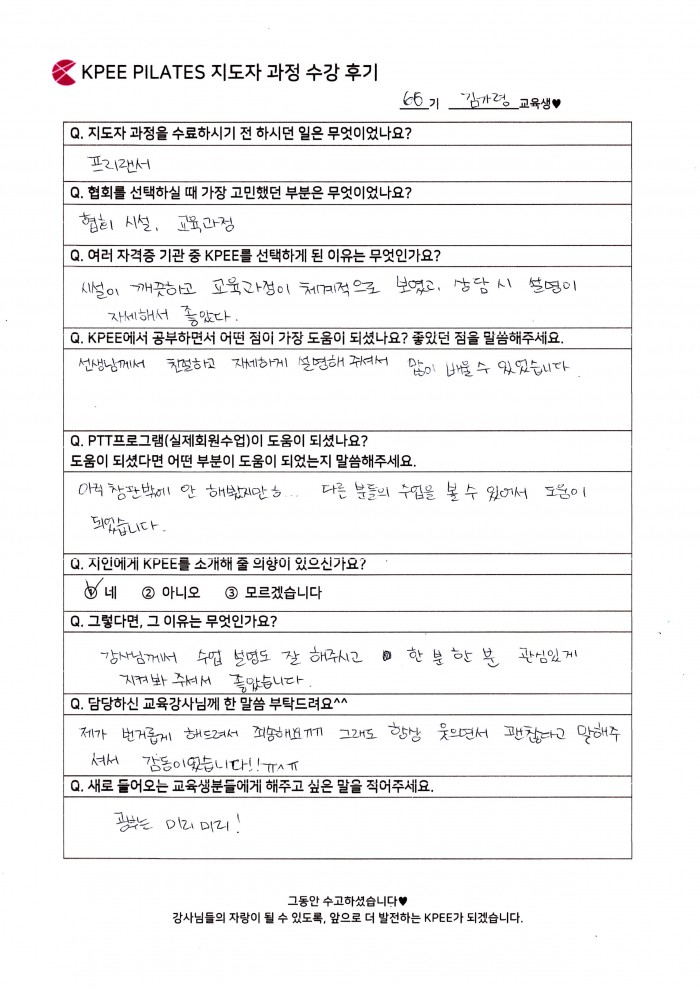 KPEE PILATES 지도자 과정 수강 후기
66기 김가령 교육생♥
Q. 지도자 과정을 수료하시기 전 하시던 일은 무엇이었나요?
프리랜서
Q. 협회를 선택하실 때 가장 고민했던 부분은 무엇이었나요?
협회 시설, 교육과정
Q. 여러 자격증 기관 중 KPEE를 선택하게 된 이유는 무엇인가요?
시설이 깨끗하고 교육과정이 체계적으로 보였고, 상담 시 설명이
자세해서 좋았다.
Q. KPEE에서 공부하면서 어떤 점이 가장 도움이 되셨나요? 좋았던 점을 말씀해주세요.
선생님께서 친절하고 자세하게 설명해주셔서 많이 배울 수 있었습니다
Q. PTT프로그램(실제회원수업)이 도움이 되셨나요?
도움이 되셨다면 어떤 부분이 도움이 되었는지 말씀해주세요.
아직 참관밖에 안 해봤지만ㅎ... 다른 분들의 수업을 볼 수 있어서 도움이
되었습니다.
Q. 지인에게 KPEE를 소개해 줄 의향이 있으신가요?
① 네 ② 아니오 ③ 모르겠습니다
Q. 그렇다면, 그 이유는 무엇인가요?
강사님께서 수업 설명도 잘 해주시고 한 분 한 분 관심있게
지켜봐 주셔서 좋았습니다.
Q. 담당하신 교육강사님께 한 말씀 부탁드려요^^
제가 번거롭게 해드려서 죄송해요ㄲㄲ 그래도 항상 웃으면서 괜찮다고 말해주
셔서 감동이었습니다!!ㅠ^ㅠ
Q. 새로 들어오는 교육생분들에게 해주고 싶은 말을 적어주세요.
공부는 미리미리!
그동안 수고하셨습니다♥
강사님들의 자랑이 될 수 있도록, 앞으로 더 발전하는 KPEE가 되겠습니다.